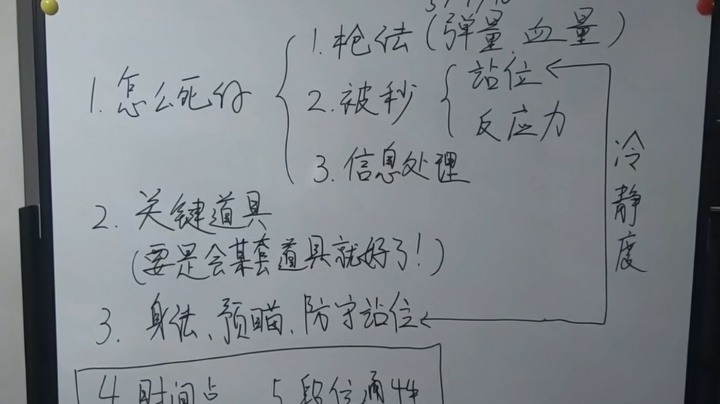 1. 枪法 (弹量, 血量)
1. 怎么死的
2. 被秒
站位
反应力
3. 信息处理
冷静度
2. 关键道具
(要是会某套道具就好了!)
3. 身法、预瞄、防守站位
4. 时间点 5. 段位通